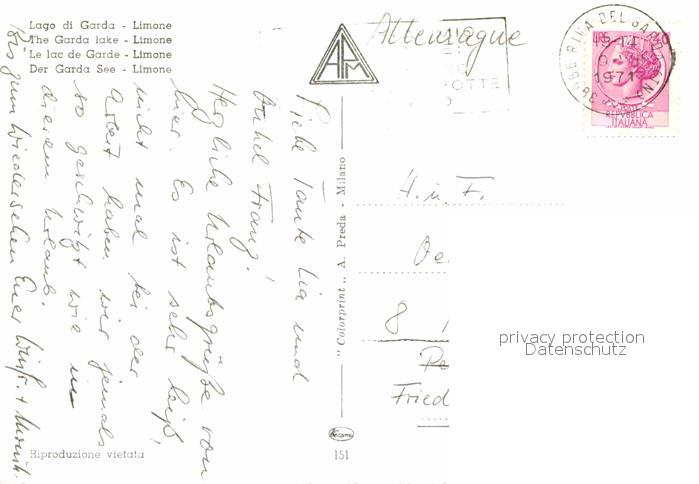 Lago di Garda - Limone
The Garda lake - Limone
Le lac de Garde - Limone
Der Garda See - Limone
APM
Allemagne
OTTE
RIVA DEL GARDA
1971
REPVBBLICA
ITALIANA
Liebe Tante Lia und
Onkel Franz!
Herzliche Urlaubsgrüße von
hier. Es ist sehr heiß,
nicht mal bei der
Arbeit haben wir jemals
so geschwitzt wie in
diesem Urlaub.
Bis zum Wiedersehen Euer
"Colorprint" A. Preda - Milano
H. u. F.
Oe
8 1
Fried
privacy protection
Datenschutz
Kecami
Riproduzione vietata
151